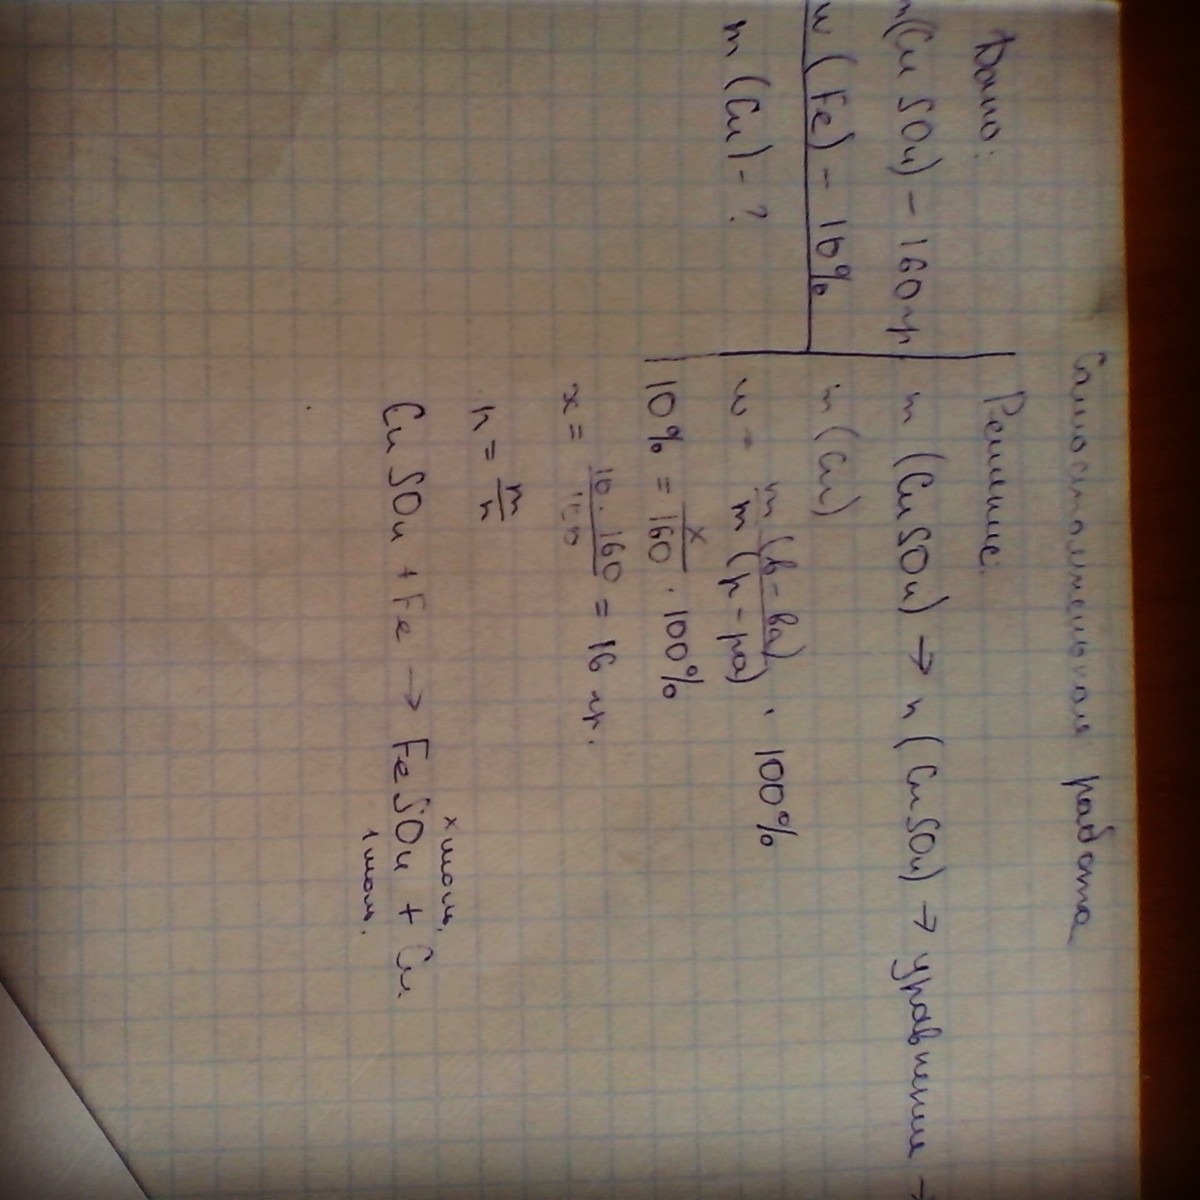 Самостоятельная работа
Дано:
m(CuSO4) - 160гр
w(Fe) - 10%
m(Cu) - ?
Решение:
m(CuSO4) → n(CuSO4) → уравнение →
m(Cu)
w = m(в-ва) / m(р-ра) · 100%
10% = x/160 · 100%
x = 10·160/100 = 16 гр.
n = m/n
x моль
CuSO4 + Fe → FeSO4 + Cu
1 моль.